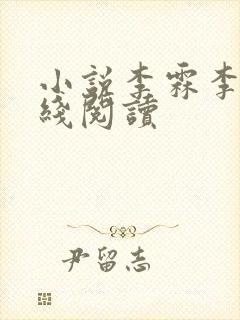 小説李霖李
綫閱讀
尹留志